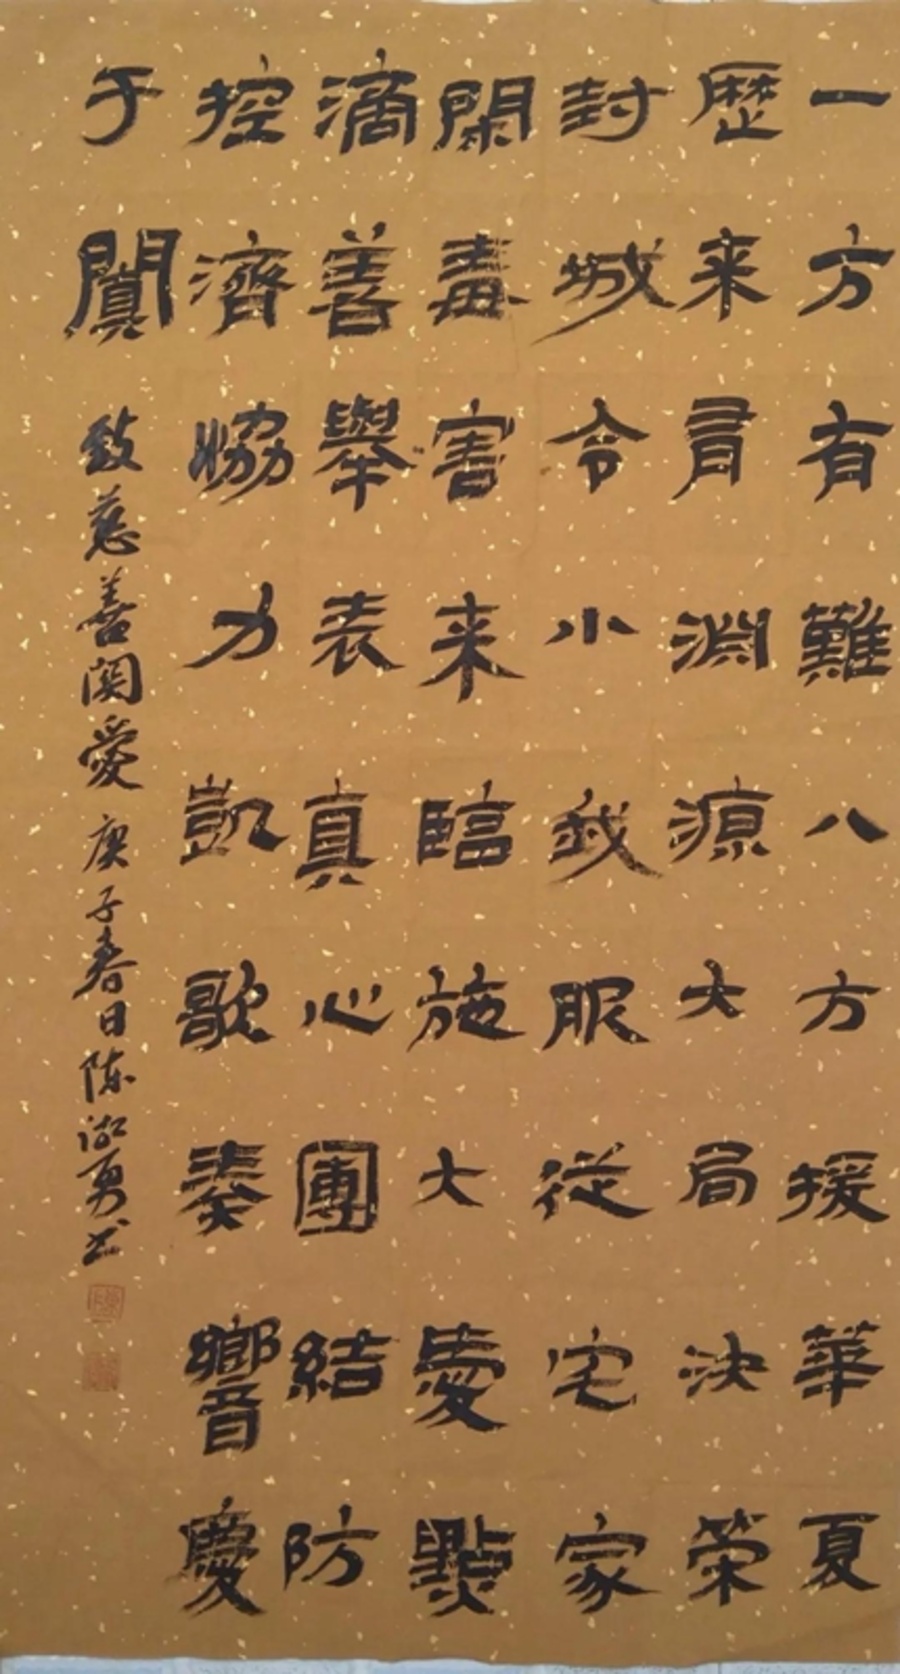 一方有難八方援華夏
歷来淵源大局決榮
封城令小我服從宅家
閑毒害来臨施大愛點
滴善舉表真心團結防
控濟協力凱歌奏響慶
于闐
致慈善関愛 庚子春日陈湖勇书